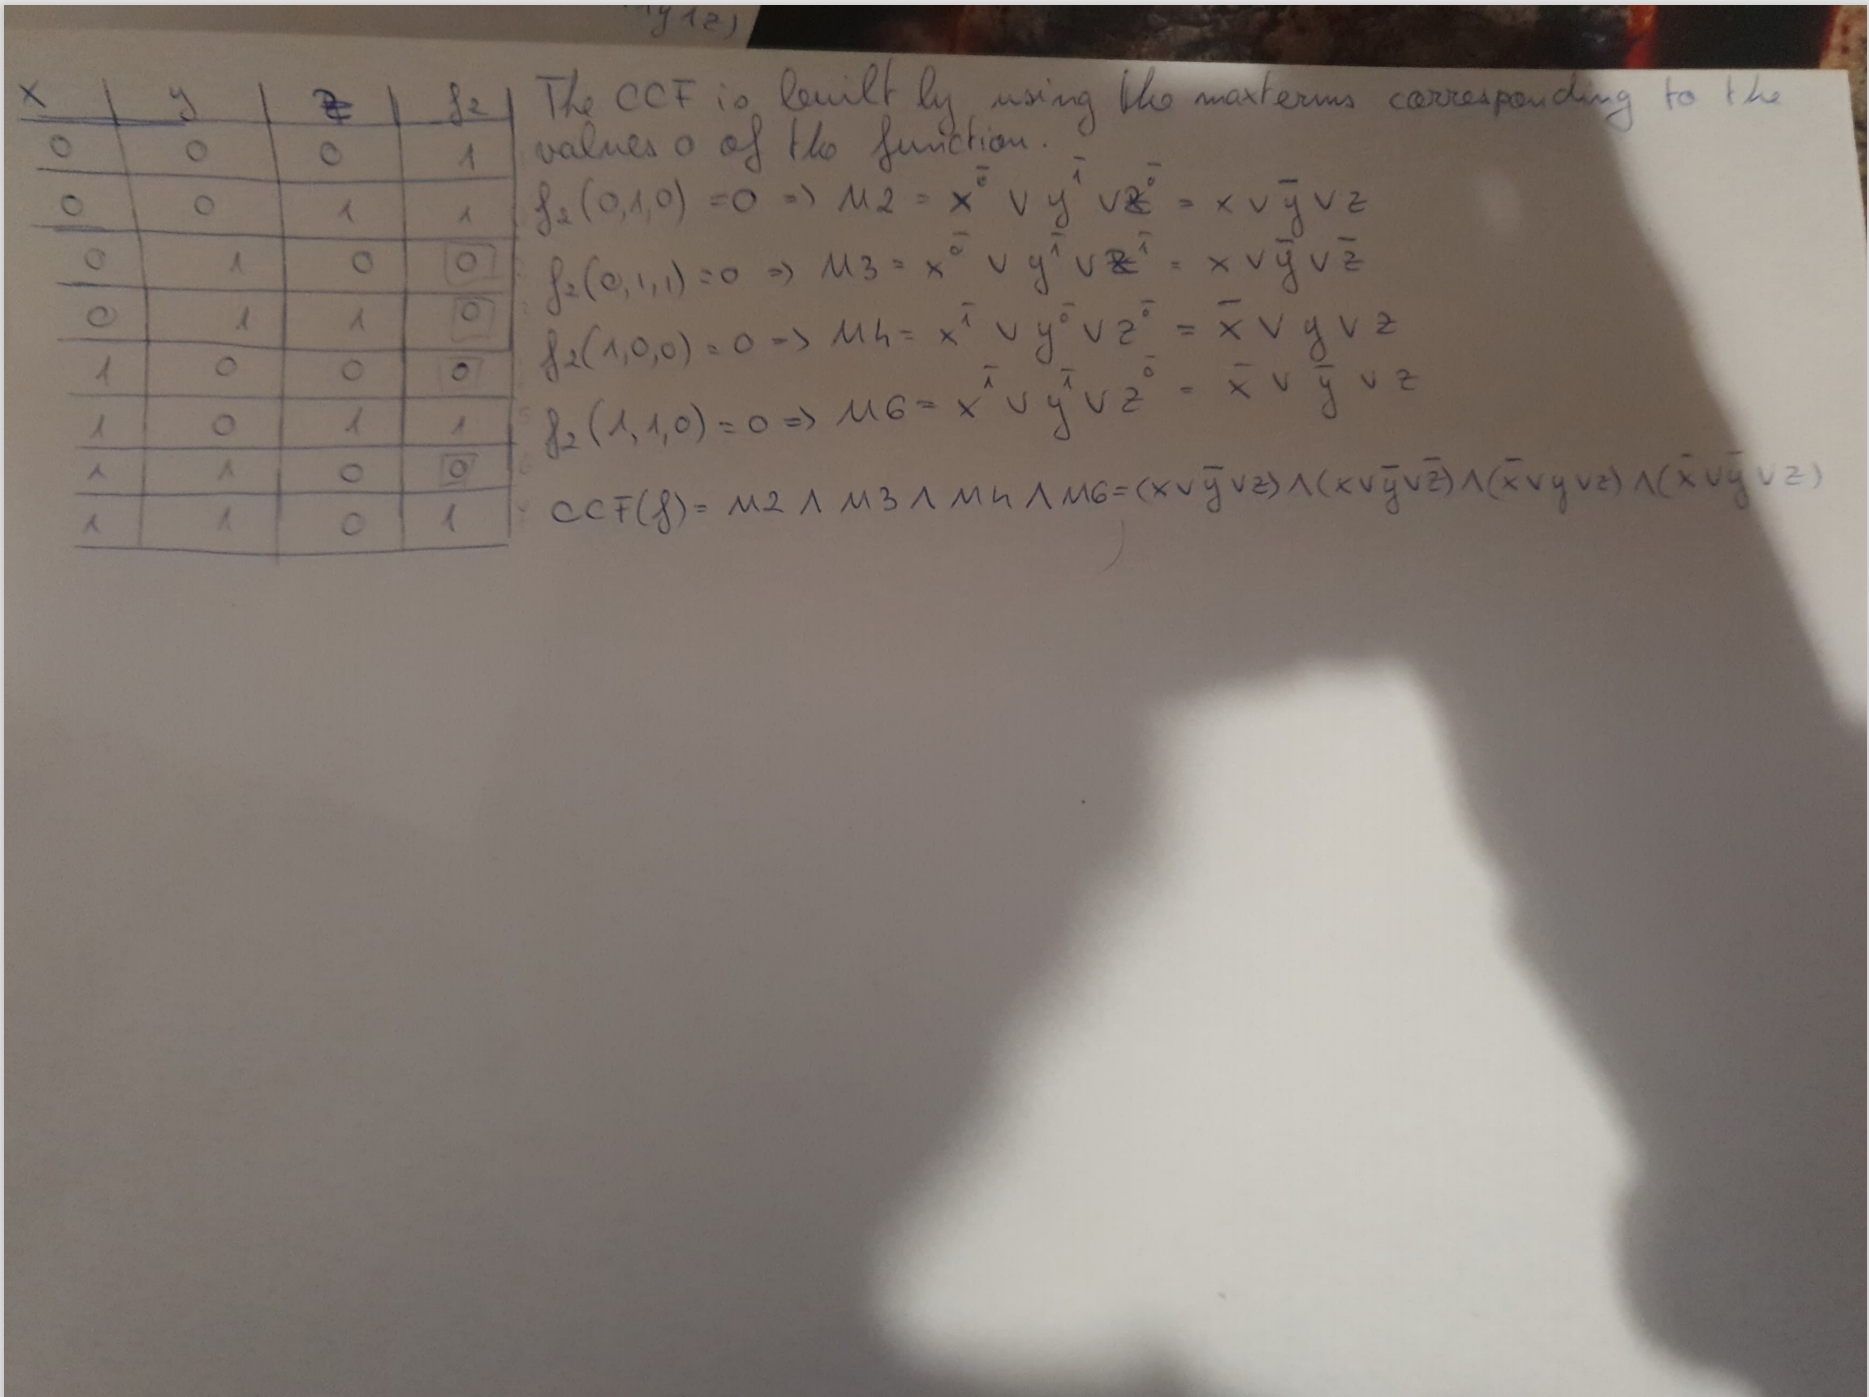 y 1 z)
x y z f₂
0 0 0 1
0 0 1 1
0 1 0 0
0 1 1 0
1 0 0 0
1 0 1 1
1 1 0 0
1 1 0 1
The CCF is built by using the maxterms corresponding to the
values 0 of the function.
f₂(0,1,0) = 0 => M2 = x^0̄ ∨ y^1̄ ∨ z^0̄ = x ∨ ȳ ∨ z
f₂(0,1,1) = 0 => M3 = x^0̄ ∨ y^1̄ ∨ z^1̄ = x ∨ ȳ ∨ z̄
f₂(1,0,0) = 0 => M4 = x^1̄ ∨ y^0̄ ∨ z^0̄ = x̄ ∨ y ∨ z
f₂(1,1,0) = 0 => M6 = x^1̄ ∨ y^1̄ ∨ z^0̄ = x̄ ∨ ȳ ∨ z
CCF(f) = M2 ∧ M3 ∧ M4 ∧ M6 = (x ∨ ȳ ∨ z) ∧ (x ∨ ȳ ∨ z̄) ∧ (x̄ ∨ y ∨ z) ∧ (x̄ ∨ ȳ ∨ z)